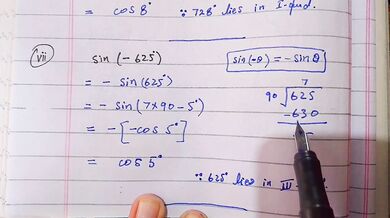 = cos 8° ∵ 728° lies in I-quad.
vii sin (-625°) sin(-θ) = -sinθ
= - sin (625°)
= - sin (7×90 - 5°)
= - [-cos 5°]
= cos 5°
7
90 √625
-630
∵ 625° lies in III